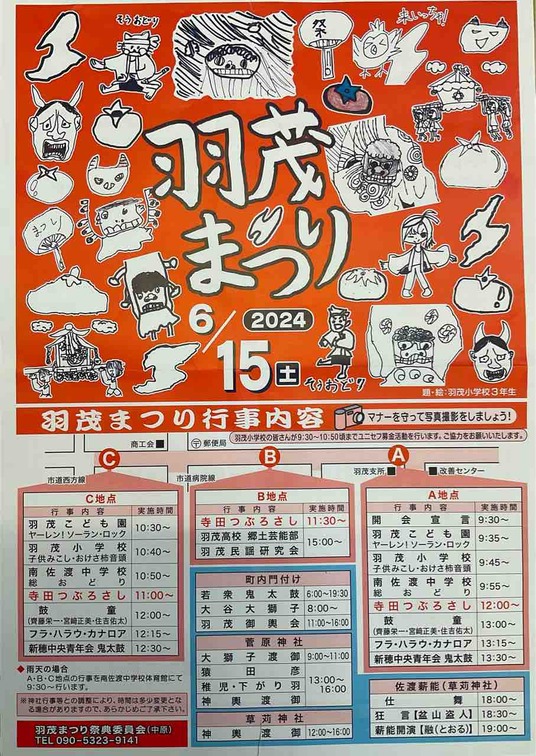 そうおどり
祭
来いっちゃ!
羽茂
まつり
まつし
6/15土
2024
そうおどり
題・絵:羽茂小学校3年生
羽茂まつり行事内容
マナーを守って写真撮影をしましょう!
羽茂小学校の皆さんが9:30~10:50頃までユニセフ募金活動を行います。ご協力をお願いいたします。
商工会
〒郵便局
C
B
A
市道西方線
市道病院線
羽茂支所
改善センター
C地点
行事内容 実施時間
羽茂こども園
ヤーレン!ソーラン・ロック 10:30~
羽茂小学校
子供みこし・おけさ柿音頭 10:40~
南佐渡中学校
総おどり 10:50~
寺田つぶろさし 11:00~
鼓童
(齊藤栄一・宮﨑正美・住吉佑太) 12:00~
フラ・ハラウ・カナロア 12:15~
新穂中央青年会 鬼太鼓 12:30~
◆雨天の場合
A・B・C地点の行事を南佐渡中学校体育館にて
9:30~行います。
※神社行事等との調整により、時間は多少変更とな
る場合がありますので、あらかじめご了承下さい。
羽茂まつり祭典委員会(中原)
TEL 090-5323-9141
B地点
行事内容 実施時間
寺田つぶろさし 11:30~
羽茂高校 郷土芸能部
羽茂民謡研究会 15:00~
町内門付け
若衆鬼太鼓 6:00~19:30
大谷大獅子 8:00~
羽茂御輿会 11:00~16:00
菅原神社
大獅子渡御 9:00~11:00
猿田彦
稚児・下がり羽
神輿渡御 13:00~16:00
草苅神社
神輿渡御 12:00~16:00
A地点
行事内容 実施時間
開会宣言 9:30~
羽茂こども園
ヤーレン!ソーラン・ロック 9:35~
羽茂小学校
子供みこし・おけさ柿音頭 9:45~
南佐渡中学校
総おどり 9:55~
寺田つぶろさし 12:00~
鼓童
(齊藤栄一・宮﨑正美・住吉佑太) 13:00~
フラ・ハラウ・カナロア 13:15~
新穂中央青年会 鬼太鼓 13:30~
佐渡薪能(草苅神社)
仕舞 18:00~
狂言【盆山盗人】 18:30~
薪能開演【融(とおる)】 19:00~